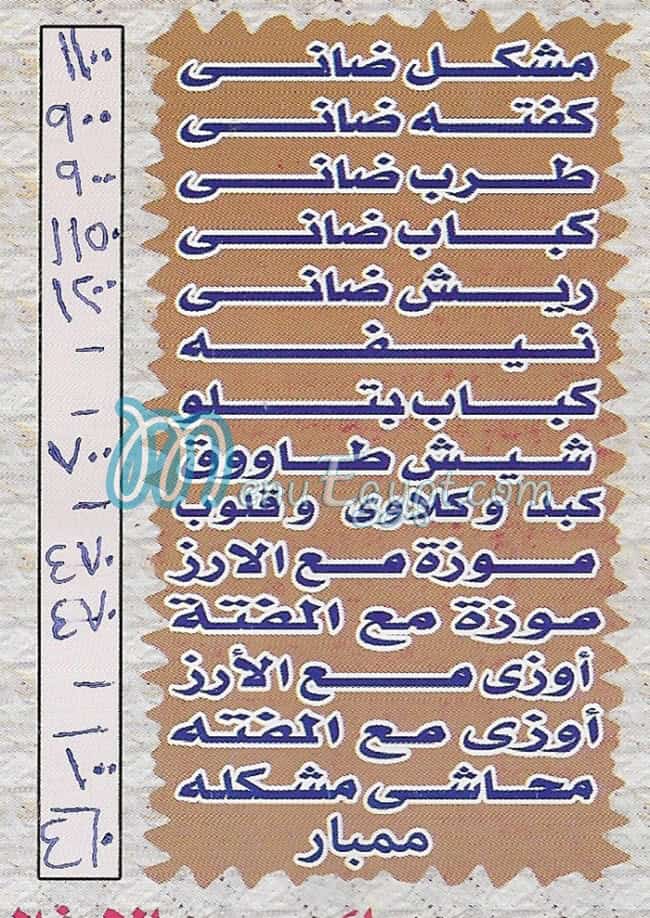 مشكل ضانى ١١٠٠
كفته ضانى ٩٠٠
طرب ضانى ٩٠٠
كباب ضانى ١١٥٠
ريش ضانى ١٢٠٠
نيفه -
كباب بتلو -
شيش طاووق ٧٠٠
كبد وكلاوى وقلوب -
موزة مع الارز
موزة مع الفتة
أوزى مع الأرز -
أوزى مع الفته -
محاشى مشكله ١٠٠
ممبار
MenuEgypt.com